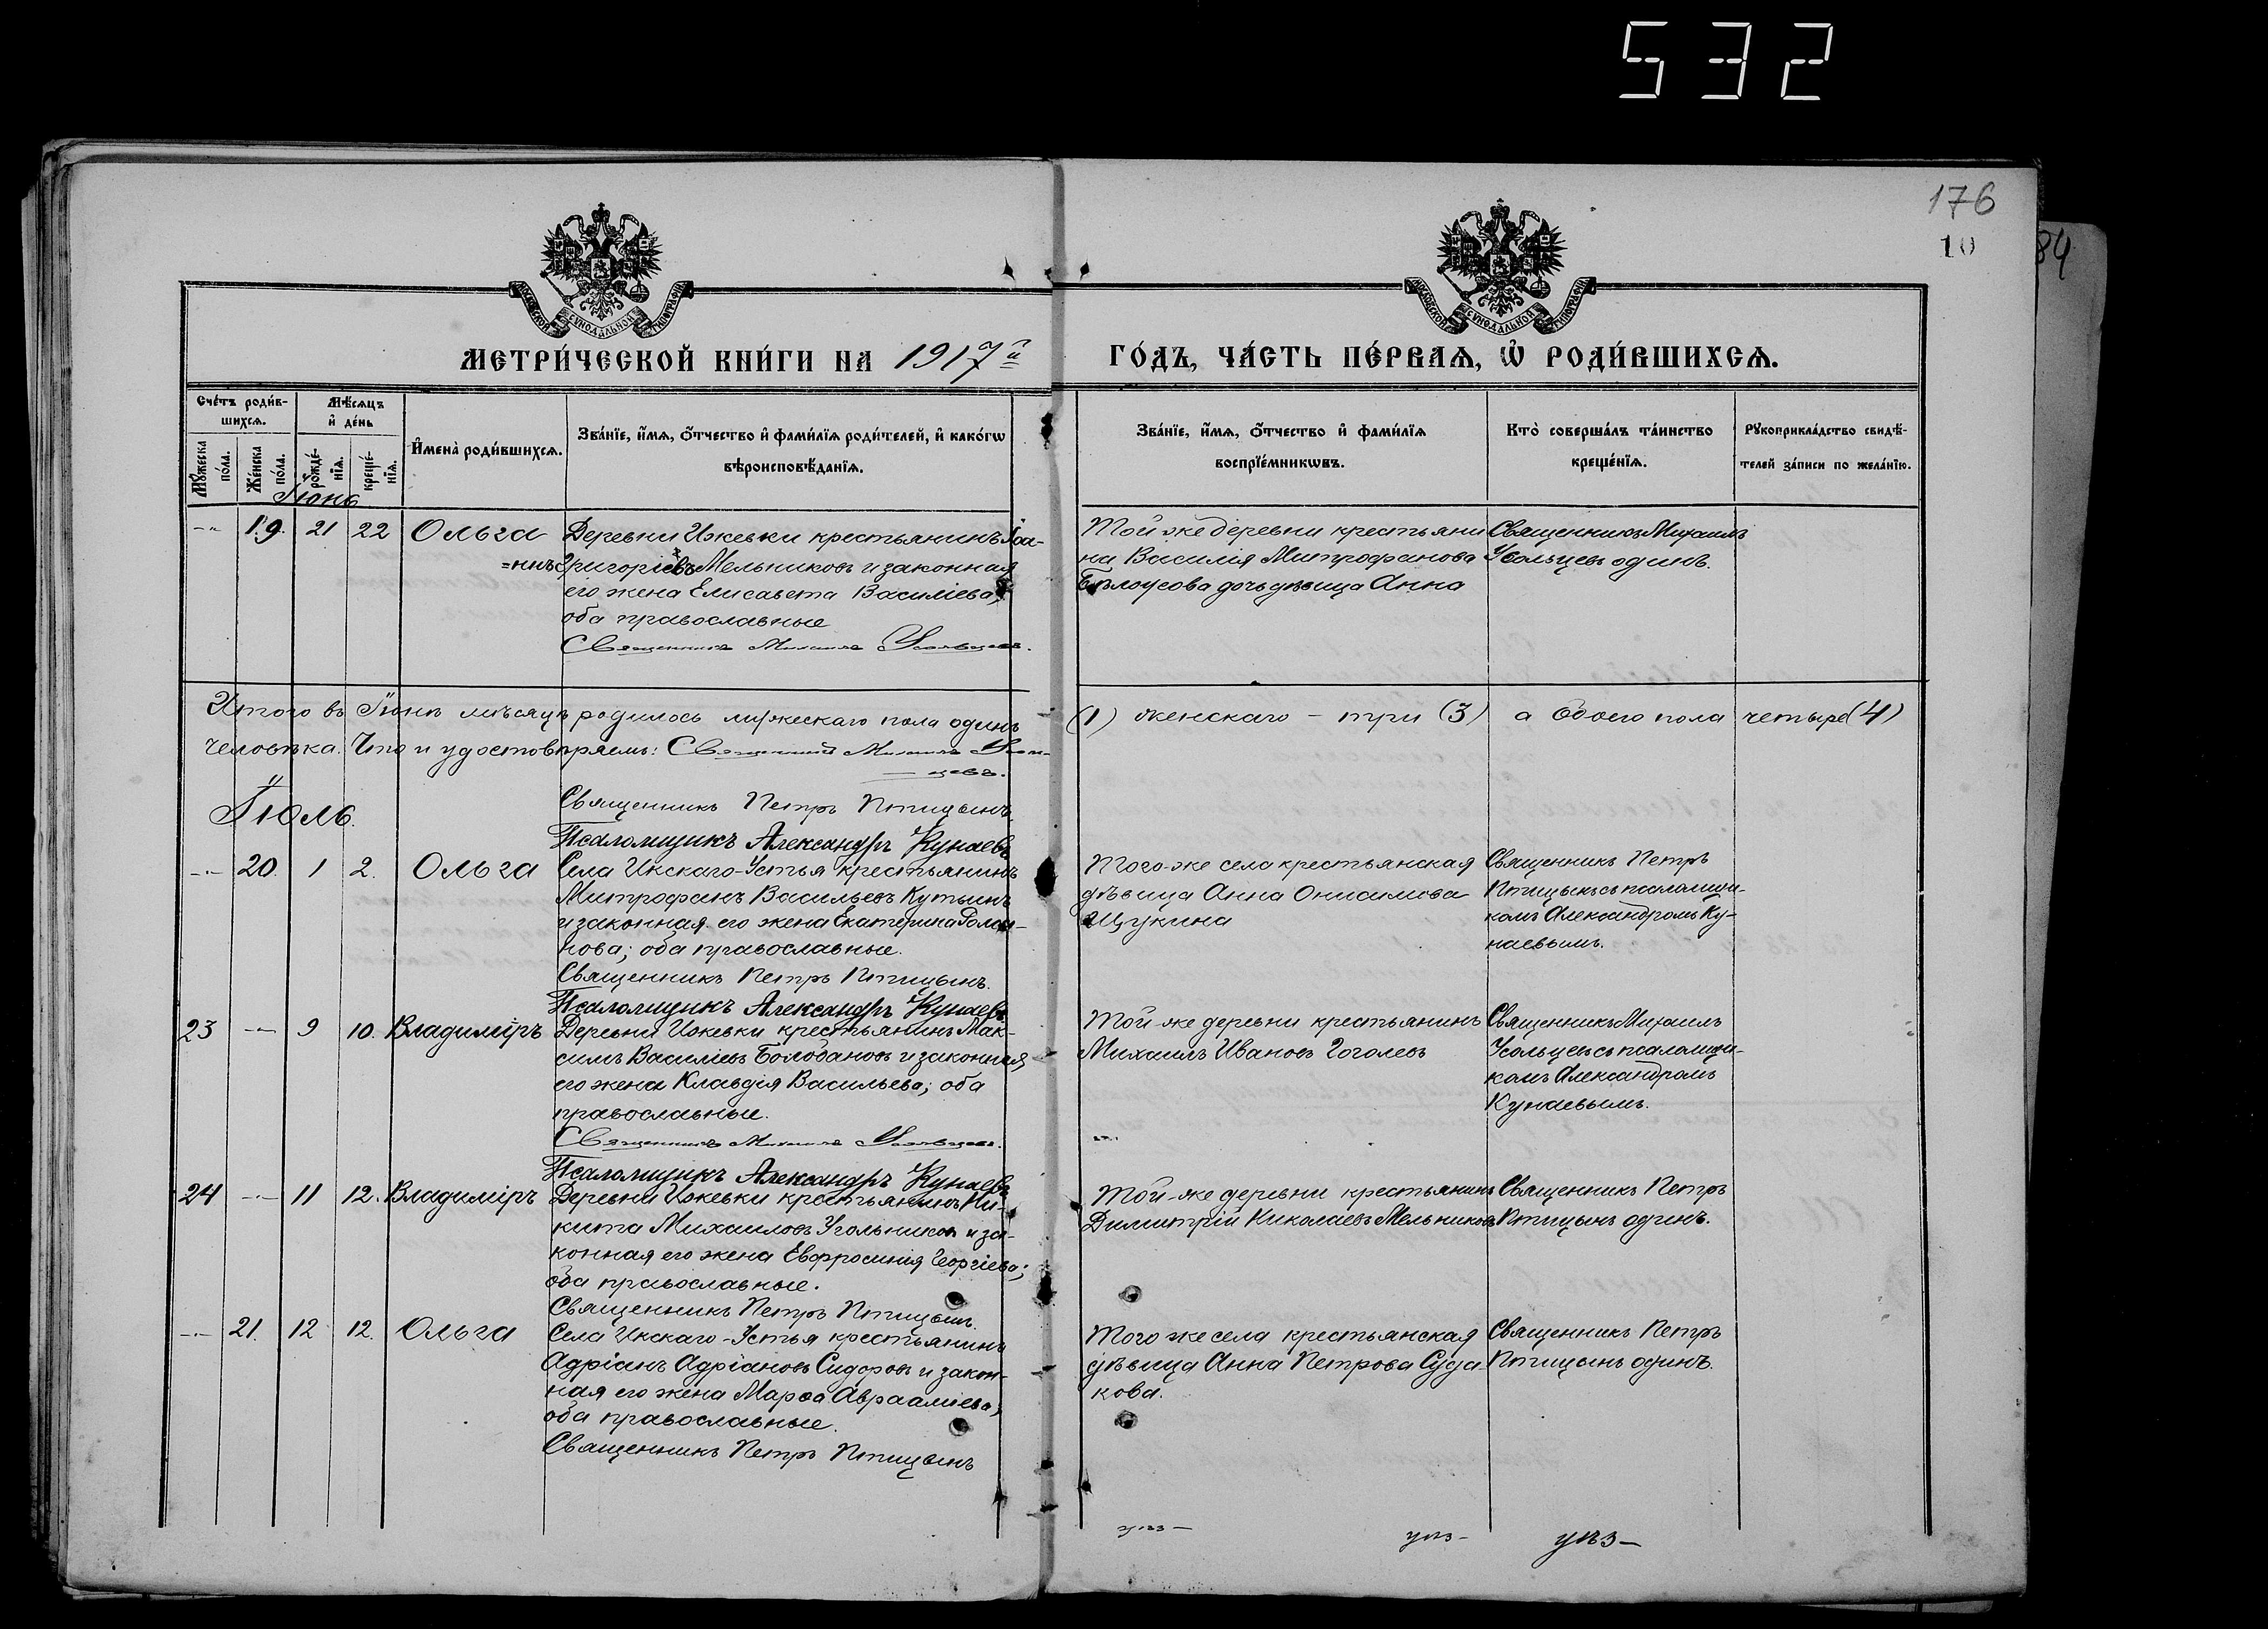 532
176
10
84
МОСКОВСКОЙ СѴНОДАЛЬНОЙ ТИПОГРАФІИ
МОСКОВСКОЙ СѴНОДАЛЬНОЙ ТИПОГРАФІИ
МЕТРИ́ЧЕСКОЙ КНИ́ГИ НА 1917й ГО́ДЪ, ЧА́СТЬ ПЕ́РВАѦ, Ѿ РОДИ́ВШИХСѦ.
Сче́тъ роди́в-
шихсѧ.
Мѣ́сѧцъ
и҆ де́нь
Мꙋ́жеска
по́ла.
Же́нска
по́ла.
рожде́-
нїѧ.
креще́-
нїѧ.
И҆мена̀ роди́вшихсѧ.
Зва́нїе, и҆́мѧ, ѻ҆́тчество и҆ фами́лїѧ роди́телей, и҆ како́гѡ
вѣроисповѣ́данїѧ.
Зва́нїе, и҆́мѧ, ѻ҆́тчество и҆ фами́лїѧ
воспрїе́мникѡвъ.
Кто̀ соверша́лъ та́инство
креще́нїѧ.
Рꙋкоприкла́дство свидѣ́-
телей за́писи по жела́нїю.
Іюнь
-"- 19. 21 22 Ольга
Деревни Ижевки крестьянинъ Іоа-
=ннъ Григоріевъ Мельниковъ и законная
его жена Елисавета Василіева;
оба православные
Священникъ Михаилъ Усольцевъ.
Той-же деревни крестьяни
на Василія Митрофанова
Бѣлоусова дочь дѣвица Анна
Священникъ Михаилъ
Усольцевъ одинъ.
Итого въ Іюнѣ мѣсяцѣ родилось мужескаго пола одинъ (1) женскаго – три (3) а обоего пола четыре (4)
человѣка. Что и удостовѣряемъ: Священникъ Михаилъ Усоль-
цевъ.
Священникъ Петръ Птицынъ
Іюль.
Псаломщикъ Александръ Кунаевъ
-"- 20. 1 2. Ольга
Села Икскаго-Устья крестьянинъ
Митрофанъ Васильевъ Кутынъ
и законная его жена Екатерина Рома-
нова; оба православные.
Священникъ Петръ Птицынъ.
Псаломщикъ Александръ Кунаевъ
Того-же села крестьянская
дѣвица Анна Онисимова
Щукина
Священникъ Петръ
Птицынъ съ псаломщи-
комъ Александромъ Ку-
наевымъ.
23 -"- 9 10. Владиміръ
Деревни Ижевки крестьянинъ Мак-
симъ Василіевъ Болобановъ и законная
его жена Клавдія Васильева; оба
православные.
Священникъ Михаилъ Усольцевъ.
Псаломщикъ Александръ Кунаевъ
Той-же деревни крестьянинъ
Михаилъ Ивановъ Гоголевъ
Священникъ Михаилъ
Усольцевъ съ псаломщи-
комъ Александромъ
Кунаевымъ.
24 -"- 11 12. Владиміръ
Деревни Ижевки крестьянинъ Ни-
кита Михаиловъ Угольниковъ и за-
конная его жена Евфросинія Георгіева;
оба православные.
Священникъ Петръ Птицынъ.
Той-же деревни крестьянинъ
Димитрій Николаевъ Мельниковъ
Священникъ Петръ
Птицынъ одинъ.
-"- 21. 12 12. Ольга
Села Икскаго-Устья крестьянинъ
Адріанъ Адріановъ Сидоровъ и закон-
ная его жена Марѳа Авраамiева;
оба православные.
Священникъ Петръ Птицынъ
Того же села крестьянская
дѣвица Анна Петрова Суда-
кова.
Священникъ Петръ
Птицынъ одинъ.